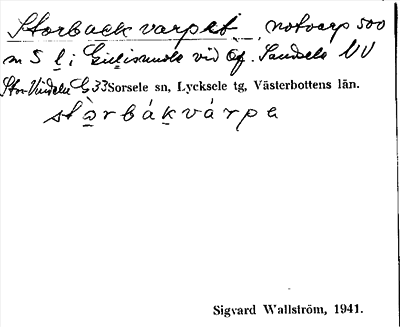 Storbackvarpet, notvarp 500
m S l i Giltsmuole vid Öf. Sandsele NV
Stor-Vindeln G 33 Sorsele sn, Lycksele tg, Västerbottens län.
stàrbákvárpa
Sigvard Wallström, 1941.